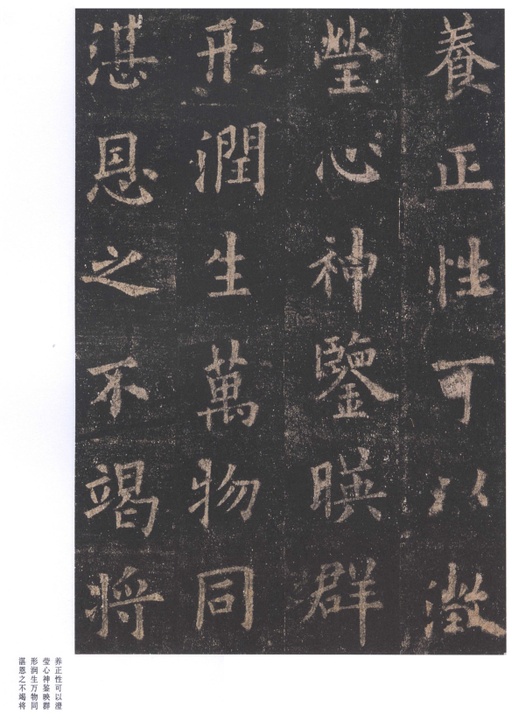 養正性可以澂
瑩心神鑒暎群
形潤生萬物同
湛恩之不竭將
养正性可以澄
莹心神鉴映群
形润生万物同
湛恩之不竭将